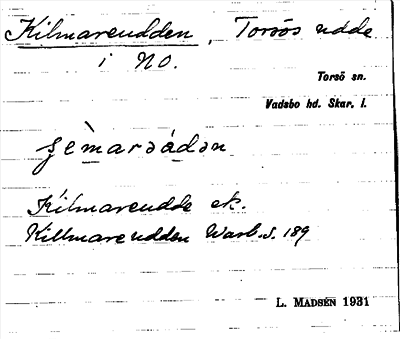 Kilmareudden, Torsös udde
i NO.
Torsö sn.
Vadsbo hd. Skar. l.
ʂèmarəádən
Kilmareudde ek.
Killmareudden Warb. s. 189
L. MADSÉN 1931